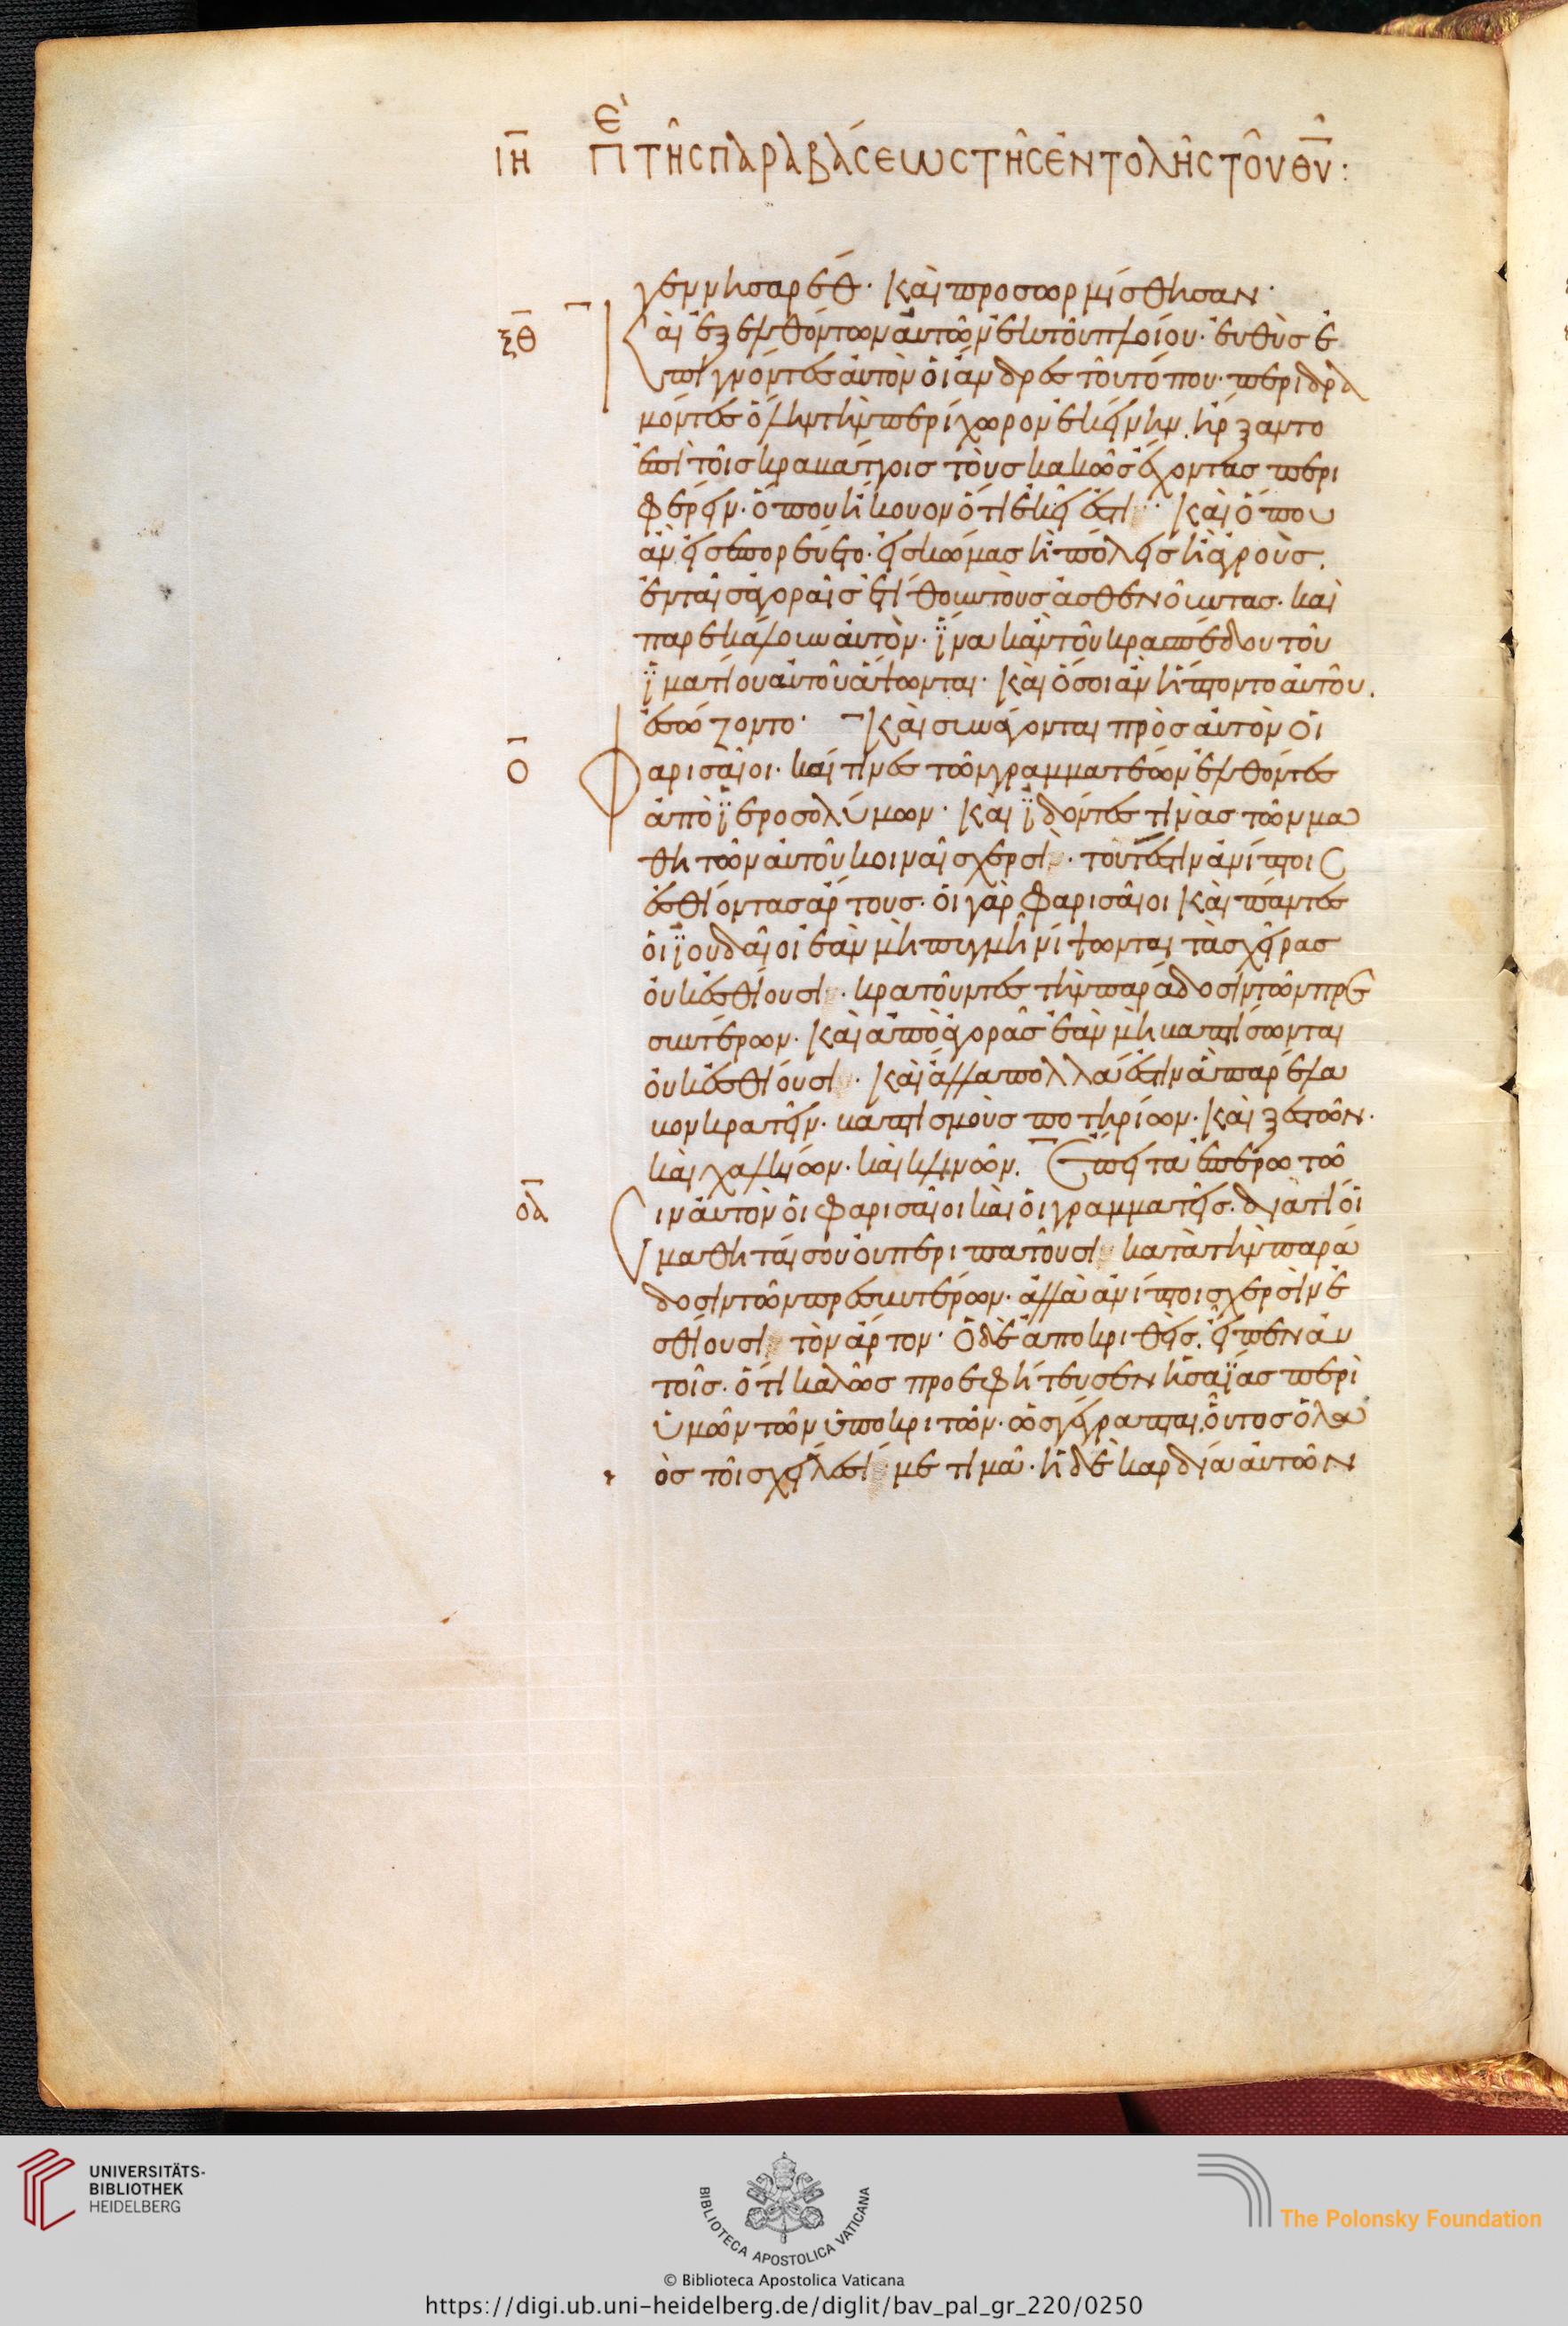 ΙΗ Πε τῆς παραβάσεως τῆς ἐντολῆς τοῦ θῦ:
γεννησαρέθ· καὶ προσωρμίσθησαν·
ξθ αὶ ἐξελθόντων αὐτῶν ἐκ τοῦ πλοίου· ἐυθὺσ ἐ
πιγνόντες αὐτὸν οἱ ἄνδρες τοῦ τόπου· περιδρα
μόντες ὅλην τὴν περίχωρον ἐκείνην. ἤρξαντο
ἐπὶ τοῖς κραβάττοις τοὺς κακῶς ἔχοντας περι
φέρειν· ὅπου ἤκουον ὅτι ἐκεῖ ἐστι· καὶ ὅπου
ἂν εἰσεπορεύετο· εἰς κώμας ἢ πόλεις ἢ ἀγρούς.
ἐν ταῖς ἀγοραῖς ἐτίθουν τοὺς ἀσθενοῦντας· καὶ
παρεκάλουν αὐτὸν· ἵνα κἂν τοῦ κρασπέδου τοῦ
ἱματίου αὐτοῦ ἅψωνται· καὶ ὅσοι ἂν ἥπτοντο αὐτοῦ.
ἐσώζοντο· Καὶ συνάγονται πρὸς αὐτὸν οἱ
ο Φαρισαῖοι· καί τινες τῶν γραμματέων ἐλθόντες
ἀπὸ ἱεροσολύμων· καὶ ἰδόντες τινὰς τῶν μα
θητῶν αὐτοῦ κοιναῖς χερσὶ· τουτέστιν ἀνίπτοις
ἐσθίοντας ἄρτους· οἱ γὰρ φαρισαῖοι καὶ πάντες
οἱ ἰουδαῖοι ἐὰν μὴ πυγμῇ νίψωνται τὰς χεῖρας
οὐκ ἐσθίουσι· κρατοῦντες τὴν παράδοσιν τῶν πρε
σβυτέρων· καὶ ἀπὸ ἀγορᾶς ἐὰν μὴ βαπτίσωνται
οὐκ ἐσθίουσι· καὶ ἄλλα πολλά ἐστιν ἃ παρέλα
βον κρατεῖν· βαπτισμοὺς ποτηρίων· καὶ ξεστῶν·
καὶ χαλκίων· καὶ κλινῶν. Ἔπειτα ἐπερωτῶ
οα σιν αὐτὸν οἱ φαρισαῖοι καὶ οἱ γραμματεῖς· διατί οἱ
μαθηταί σου οὐ περιπατοῦσι κατὰ τὴν παρά
δοσιν τῶν πρεσβυτέρων· ἀλλὰ ἀνίπτοις χερσὶν ἐ
σθίουσι τὸν ἄρτον· Ὁ δὲ ἀποκριθεὶς. εἶπεν αὐ
τοῖς· ὅτι καλῶς προεφήτευσεν ἠσαΐας περὶ
ὑμῶν τῶν ὑποκριτῶν· ὡς γέγραπται. οὗτος ὁ λα
ὸς τοῖς χείλεσί με τιμᾶ· ἡ δὲ καρδία αὐτῶν
UNIVERSITÄTS-
BIBLIOTHEK
HEIDELBERG
BIBLIOTECA APOSTOLICA VATICANA
The Polonsky Foundation
© Biblioteca Apostolica Vaticana
https://digi.ub.uni-heidelberg.de/diglit/bav_pal_gr_220/0250